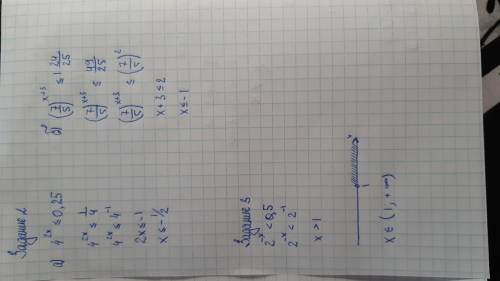 Задание 2
а) 4^{2x} ≤ 0,25
4^{2x} ≤ 1/4
4^{2x} ≤ 4^{-1}
2x ≤ -1
x ≤ -1/2
б) (7/5)^{x+3} ≤ 1 24/25
(7/5)^{x+3} ≤ 49/25
(7/5)^{x+3} ≤ (7/5)^2
x + 3 ≤ 2
x ≤ -1
Задание 3
2^{-x} < 0,5
2^{-x} < 2^{-1}
x > 1
1 x
x ∈ (1, +∞)